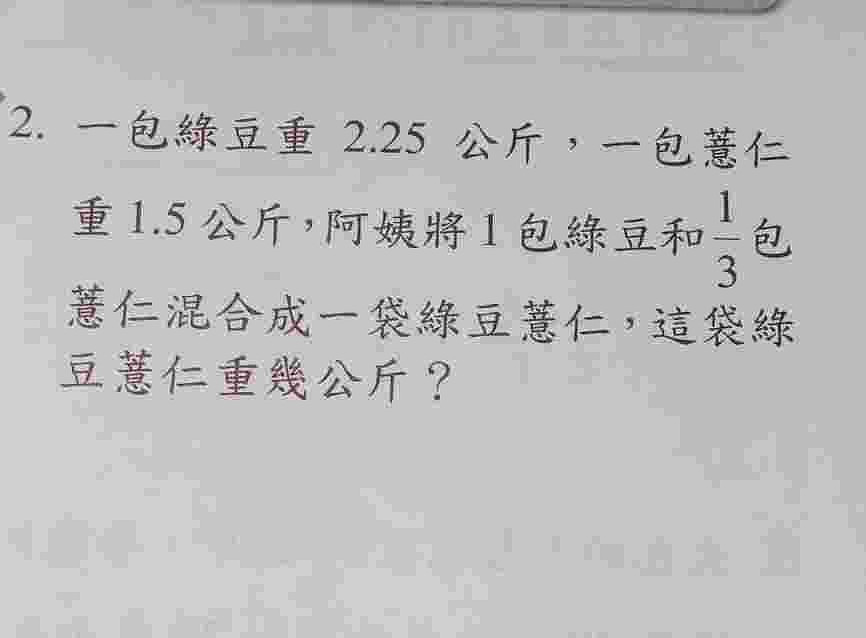 2. 一包綠豆重 2.25 公斤，一包薏仁
重 1.5 公斤，阿姨將 1 包綠豆和 1/3 包
薏仁混合成一袋綠豆薏仁，這袋綠
豆薏仁重幾公斤？